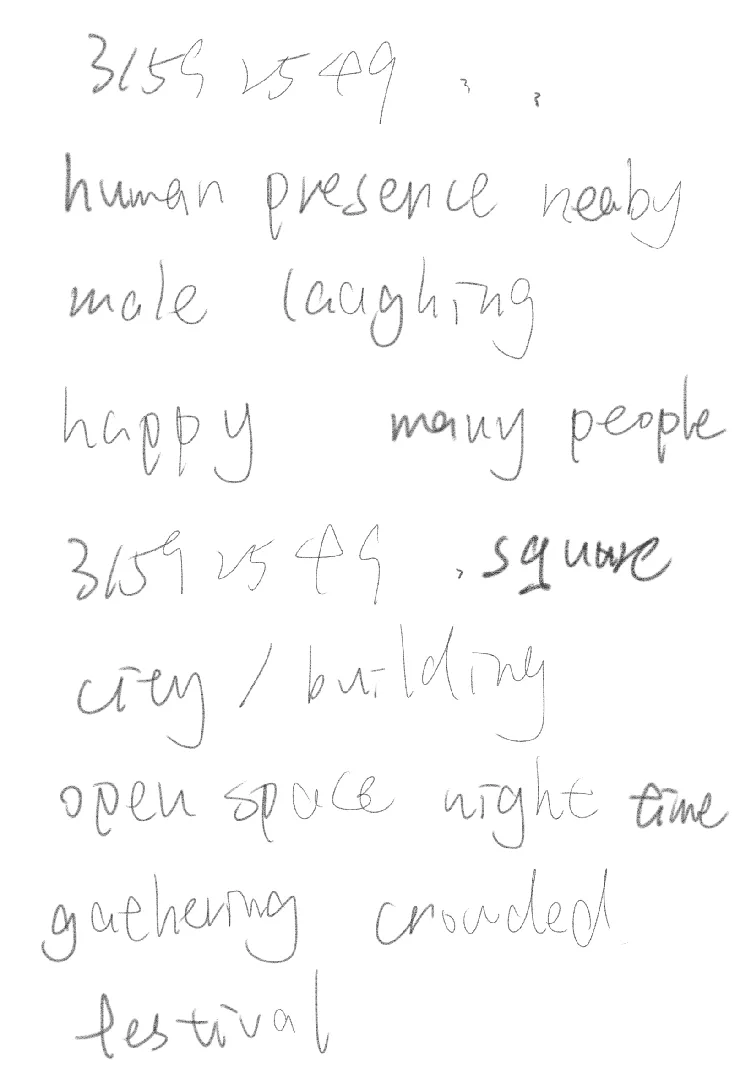 3159 2549 , ,
human presence neaby
male laughing
happy many people
3159 2549 . square
city / building
open space night time
gathering crowded
festival